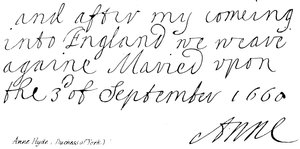 and after my comeing
into England we weare
againe Maried vpon
the 3d of September 1660
Anne
Anne Hyde. Duchess of York.)